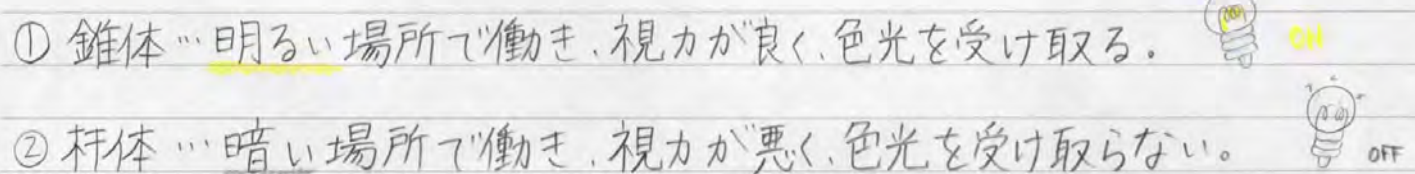 ① 錐体…明るい場所で働き、視力が良く、色光を受け取る。 ON
② 杆体…暗い場所で働き、視力が悪く、色光を受け取らない。 OFF